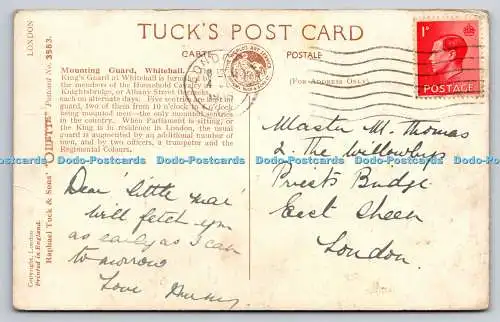 TUCK'S POST CARD
CARTE POSTALE
(FOR ADDRESS ONLY)
LONDON
Postcard No. 3583.
"OILETTE"
Raphael Tuck & Sons'
Copyright, London
Printed in England.
Mounting Guard, Whitehall.
King's Guard at Whitehall is furnished
the members of the Household Cavalry
Knightsbridge, or Albany Street Barracks,
each on alternate days. Five sentries
guard, two of them from 10 o'clock
being mounted men—the only mounted sentries
in the country. When Parliament is sitting, or
the King is in residence in London, the usual
guard is augmented by an additional number of
men, and by two officers, a trumpeter and the
Regimental Colours.
1D
POSTAGE
Dear 'little man'
will fetch you
as early as I can
to morrow
Love
Master M. Thomas
2 The Willows
Priests Bridge
East Sheen
London.
Dodo-Postcards Dodo-Postcards Dodo-Postcards Dodo-Postcards Dodo-Postcards